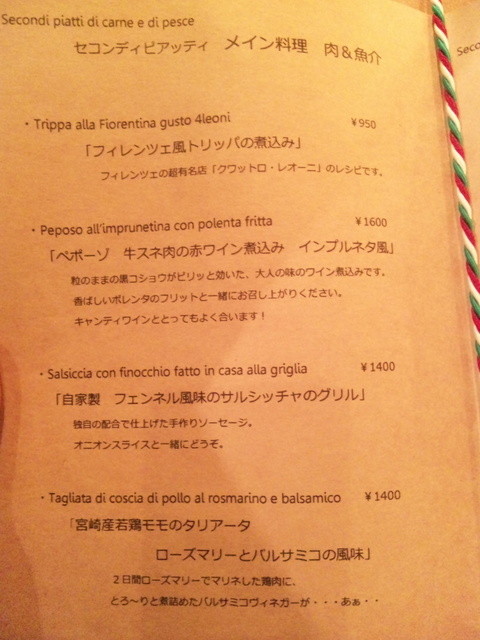 Secondi piatti di carne e di pesce
セコンディピアッティ メイン料理 肉&魚介
・Trippa alla Fiorentina gusto 4leoni ¥950
「フィレンツェ風トリッパの煮込み」
フィレンツェの超有名店「クワットロ・レオーニ」のレシピです。
・Peposo all'imprunetina con polenta fritta ¥1600
「ペポーゾ 牛スネ肉の赤ワイン煮込み インプルネタ風」
粒のままの黒コショウがピリッと効いた、大人の味のワイン煮込みです。
香ばしいポレンタのフリットと一緒にお召し上がりください。
キャンティワインととってもよく合います！
・Salsiccia con finocchio fatto in casa alla griglia ¥1400
「自家製 フェンネル風味のサルシッチャのグリル」
独自の配合で仕上げた手作りソーセージ。
オニオンスライスと一緒にどうぞ。
・Tagliata di coscia di pollo al rosmarino e balsamico ¥1400
「宮崎産若鶏モモのタリアータ
ローズマリーとバルサミコの風味」
２日間ローズマリーでマリネした鶏肉に、
とろ～りと煮詰めたバルサミコヴィネガーが・・・あぁ・・
Seco